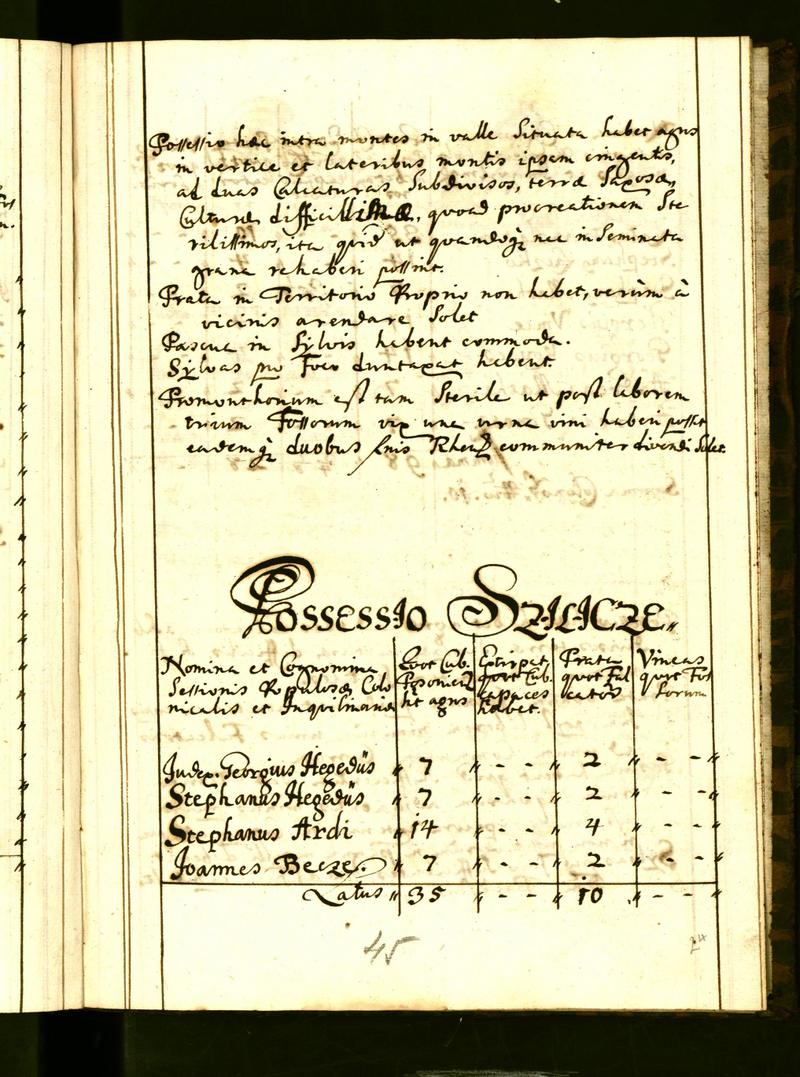 Possessio hæc intra montes in valle Situata habet agros
in vertice et lateribus montis ipsam cingentis,
ad duas Calcaturas Subdivisos, terræ Saxosæ,
Culturæ difficillimæ, quoad procreationem Ste
rilissimos, ita quid ut quandoq nec inSeminata
grana rehaberi possint.
Prata in Territorio Proprio non habet, verùm à
vicinis arendare Solet
Pascua in Sylvis habent commoda.
Sylvas pro Foco duntaxat habent.
Promonthorium est tam Sterile ut post laborem
trium Fossorum vix una urna vini haberi possit
eademq duobus finis Rhen communiter divendi Solet.
Possessio Szilicze
Nomina et Cognomina
Sessionis Populosæ Colo
nicalis et Inquilinariæ
Quot Cub.
Posonien
sit agros
Extirpat.
quot Cub.
capaces
habet.
Prata
quot Fal
catorũ
Vineas
quot Fos
sorum
Judex. Georgius Hegedüs " 7 " - - " 2 " - - "
Stephanus Hegedüs " 7 " - - " 2 " - - "
Stephanus Ardi " 14 " - - " 4 " - - "
Joannes Becze. " 7 " - - " 2 " - - "
Latus " 35 " - - " 10 " - - "
45
24